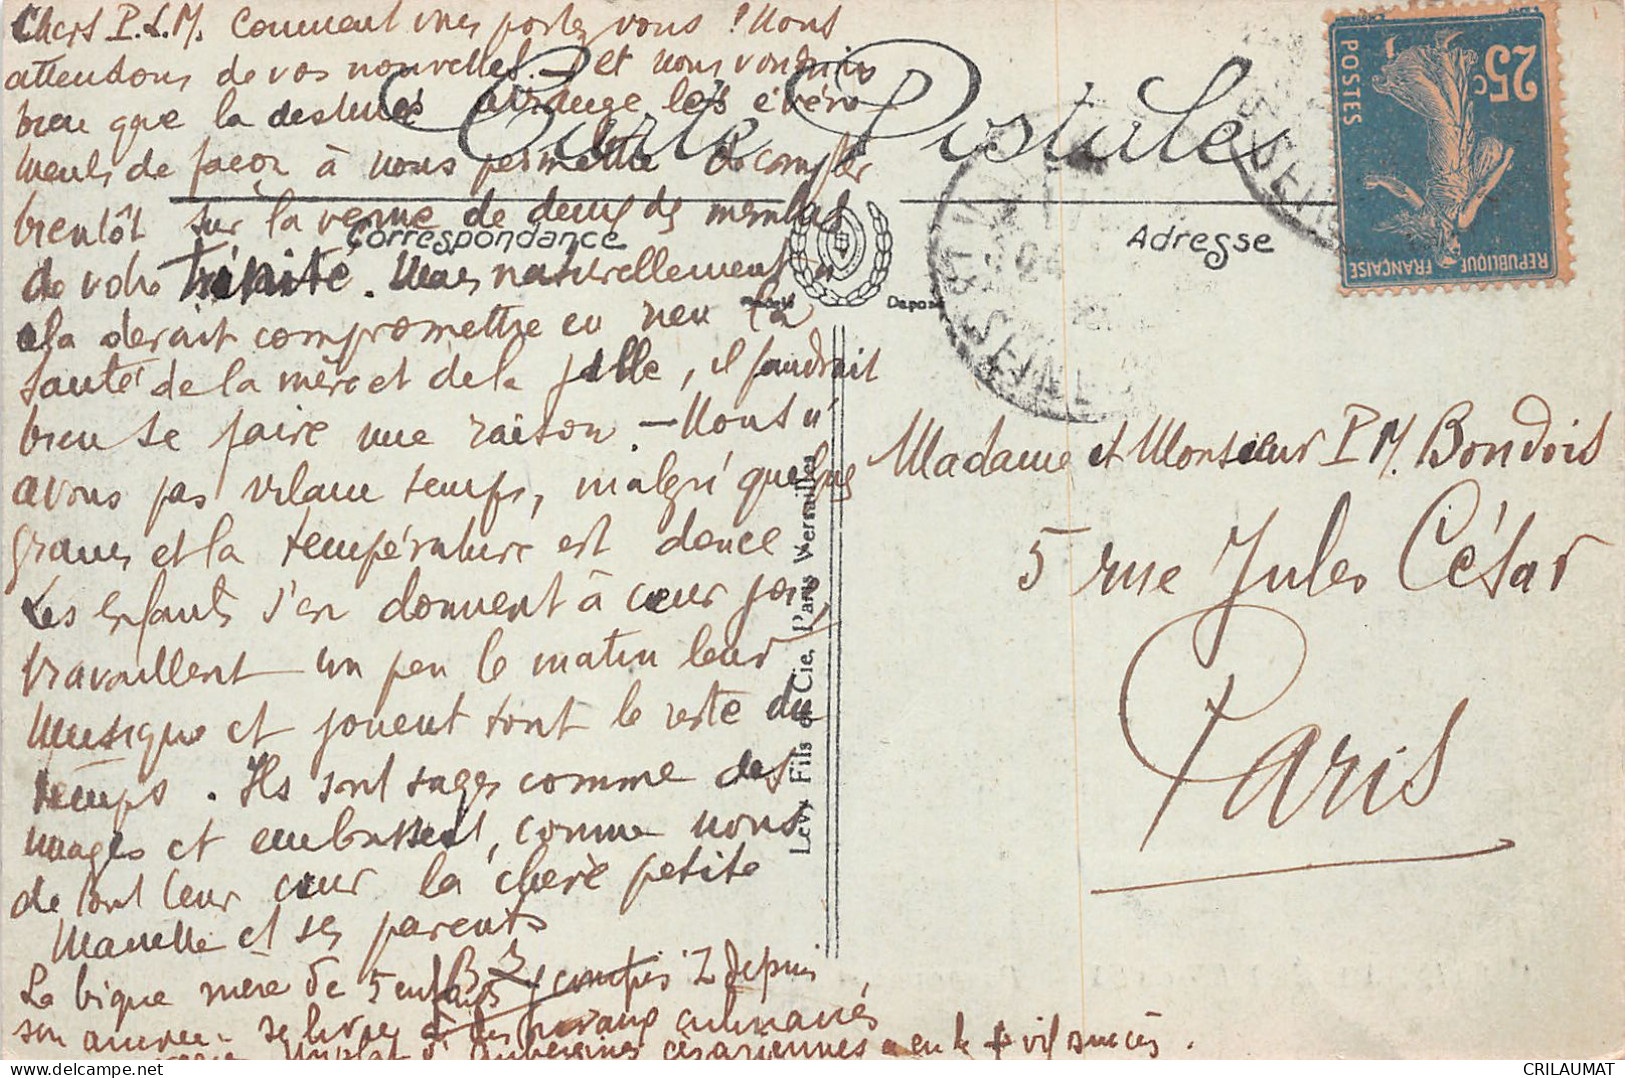 Chers P.L.M. Comment vous portez vous ? Nous
attendons de vos nouvelles. — et nous voudrions
bien que la destinée arrange les événe
ments de façon à nous permettre de compter
bientôt sur la venue de deux des membres
de votre trinité. Mais naturellement si
cela devait compromettre en rien la
santé de la mère et de la fille, il faudrait
bien se faire une raison. — Nous n'
avons pas vilain temps, malgré quelques
grains et la température est douce
Les enfants s'en donnent à cœur joie,
travaillent un peu le matin leur
musique et jouent tout le reste du
temps. Ils sont sages comme des
images et embrassent, comme nous
de tout leur cœur la chère petite
et ses parents
La bique mère de 5 enfants y compris 2 depuis
son arrivée se livre à des travaux culinaires
d'aubergines césariennes a eu le + vif succès.
Carte Postale
Correspondance
Adresse
Modèle Déposé
Levy Fils et Cie, Paris Versailles
25c
POSTES
REPUBLIQUE FRANÇAISE
SEINE
Madame et Monsieur P M. Bondois
5 rue Jules César
Paris
CRILAUMAT